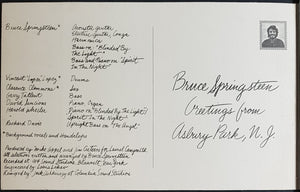 Bruce Springsteen*
Acoustic Guitar,
Electric Guitar, Congas
Harmonica
Bass on "Blinded By
The Light"
Bass and Piano on "Spirit
In The Night"
Vincent Lopez
Drums
Clarence Clemons*
Sax
Gary Tallent
Bass
David Sancious
Piano, Organ
Harold Wheeler
Piano on "Blinded By The Light"/
Spirit In The Night"
Richard Davis
Upright Bass on "The Angel"
*Background vocals and Handclaps
Produced by Mike Appel and Jim Cretecos for Laurel Canyon Ltd.
All selections written and arranged by Bruce Springsteen
Recorded at 914 Sound Studios, Blauvelt, New York
Engineered by Louis Lahav
Remixed by Jack Ashkinazy at Columbia Sound Studios
Bruce Springsteen
Greetings from
Asbury Park, N. J.